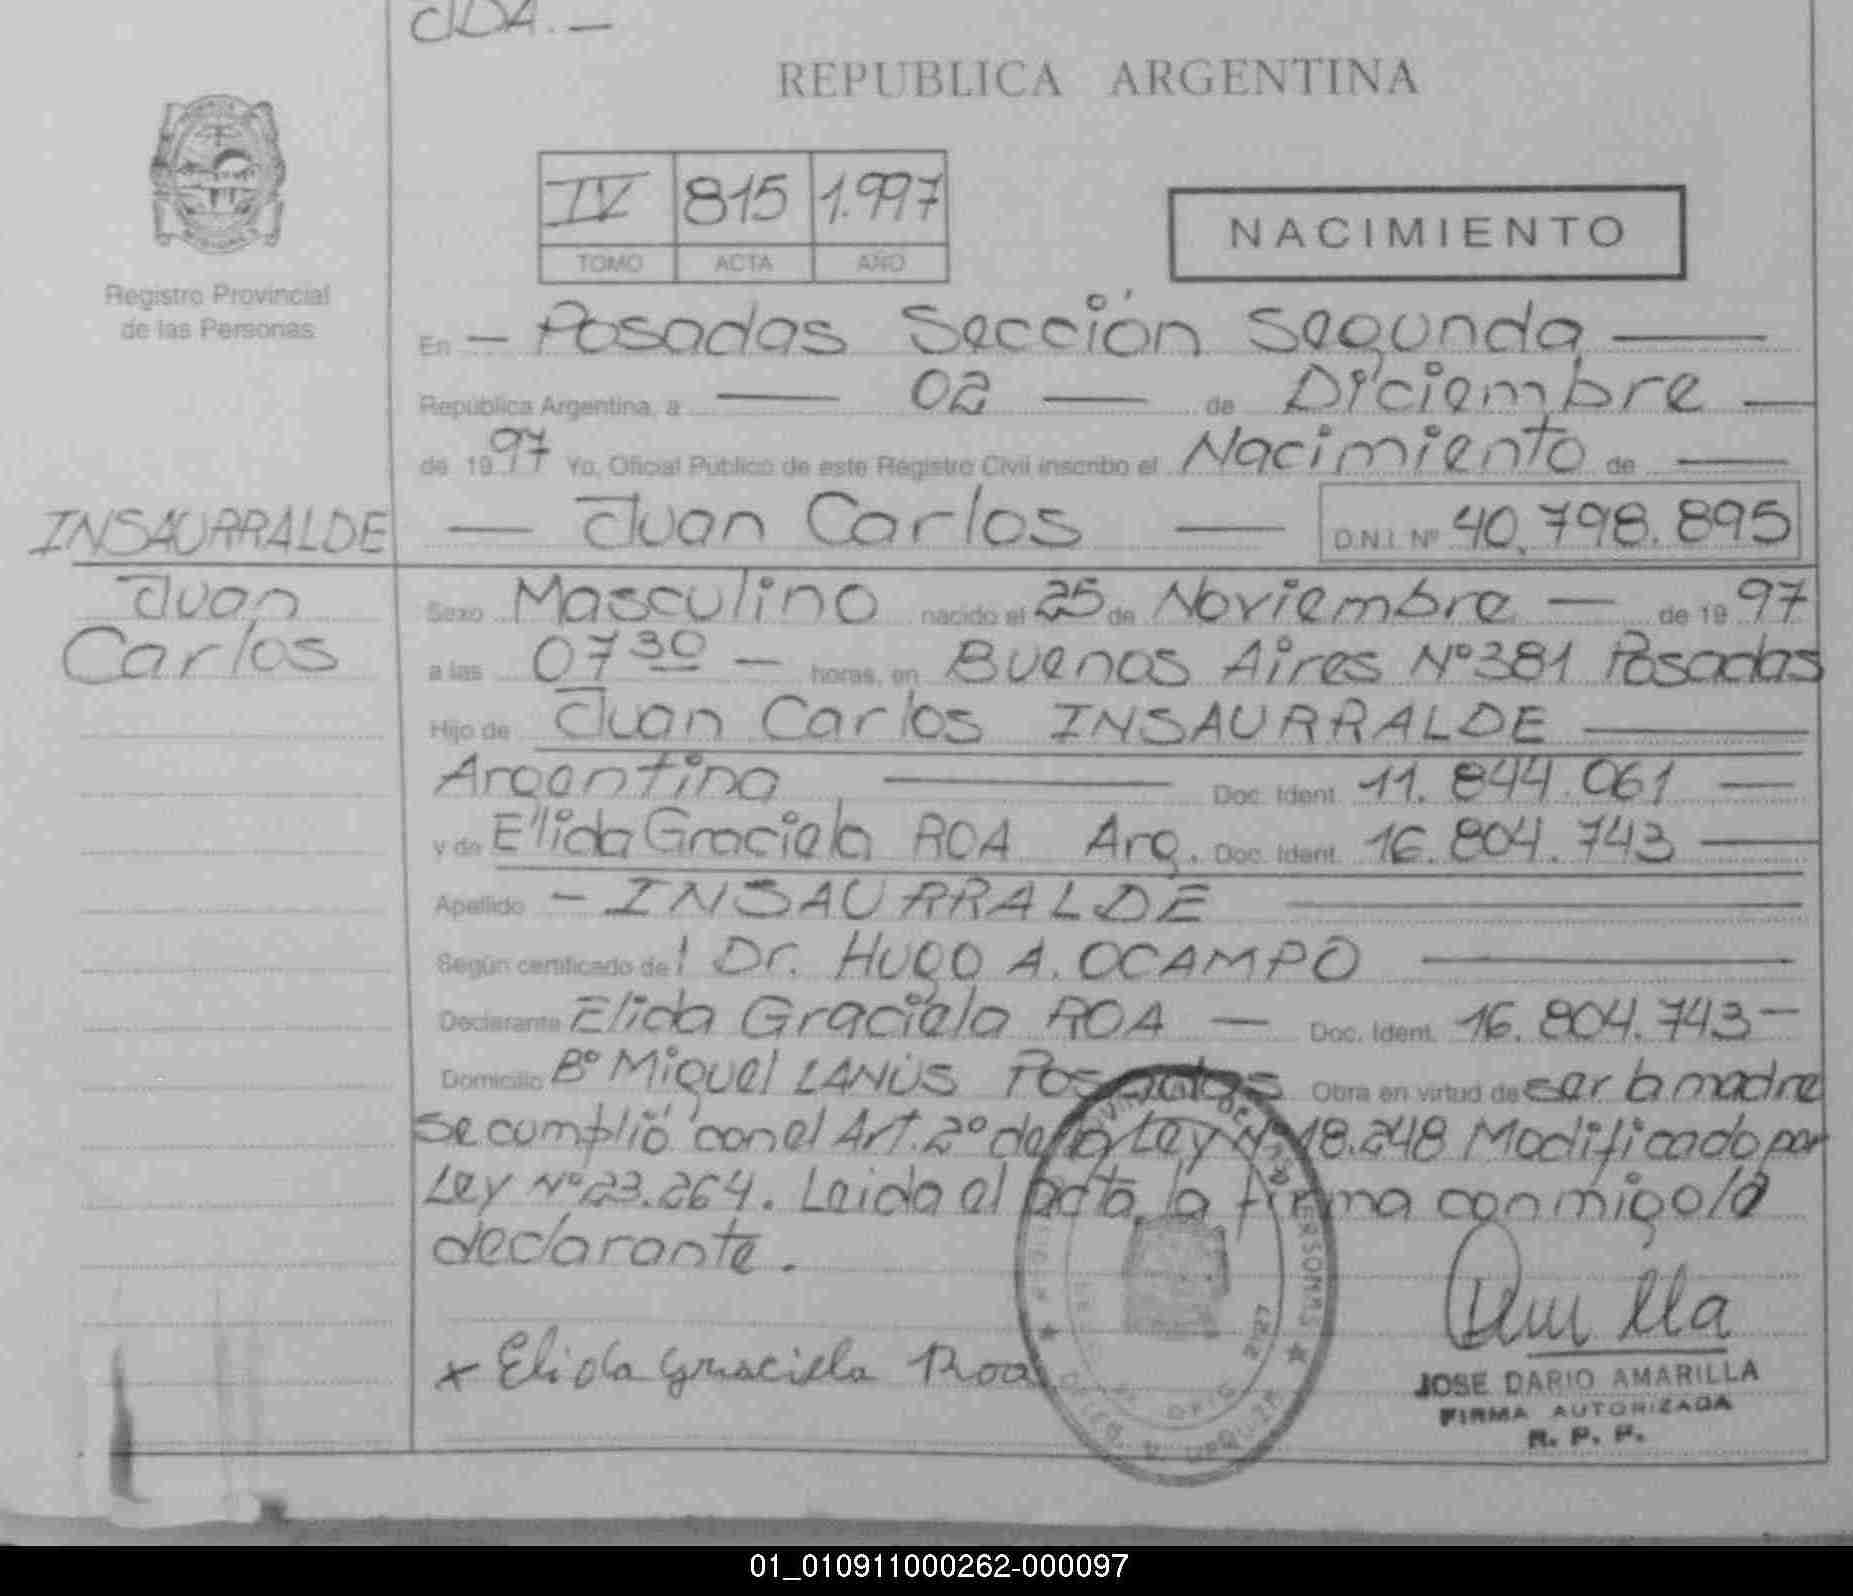 CDA. —
REPUBLICA ARGENTINA
IV 815 1.997
TOMO ACTA AÑO
NACIMIENTO
Registro Provincial
de las Personas
En — Posadas Sección Segunda —
República Argentina, a — 02 — de Diciembre —
de 1997 Yo, Oficial Público de este Registro Civil inscribo el Nacimiento de —
INSAURRALDE
Juan
Carlos
— Juan Carlos — D.N.I. Nº 40.798.895
Sexo Masculino nacido el 25 de Noviembre — de 1997
a las 07 30 — horas, en Buenos Aires Nº 381 Posadas
Hijo de Juan Carlos INSAURRALDE —
Argentino — Doc. Ident. 11.844.061 —
y de Elida Graciela ROA Arg. Doc. Ident. 16.804.743 —
Apellido — INSAURRALDE —
Según certificado del Dr. HUGO A. OCAMPO —
Declarante Elida Graciela ROA — Doc. Ident. 16.804.743 —
Domicilio Bº Miguel LANÚS Posadas Obra en virtud de ser la madre
se cumplió con el Art. 2º de la Ley Nº 18.248 Modificado por
Ley Nº 23.264. Leida el acta, la firma conmigo la
declarante.
x Elida Graciela Roa
JOSE DARIO AMARILLA
FIRMA AUTORIZADA
R. P. P.
01_010911000262-000097